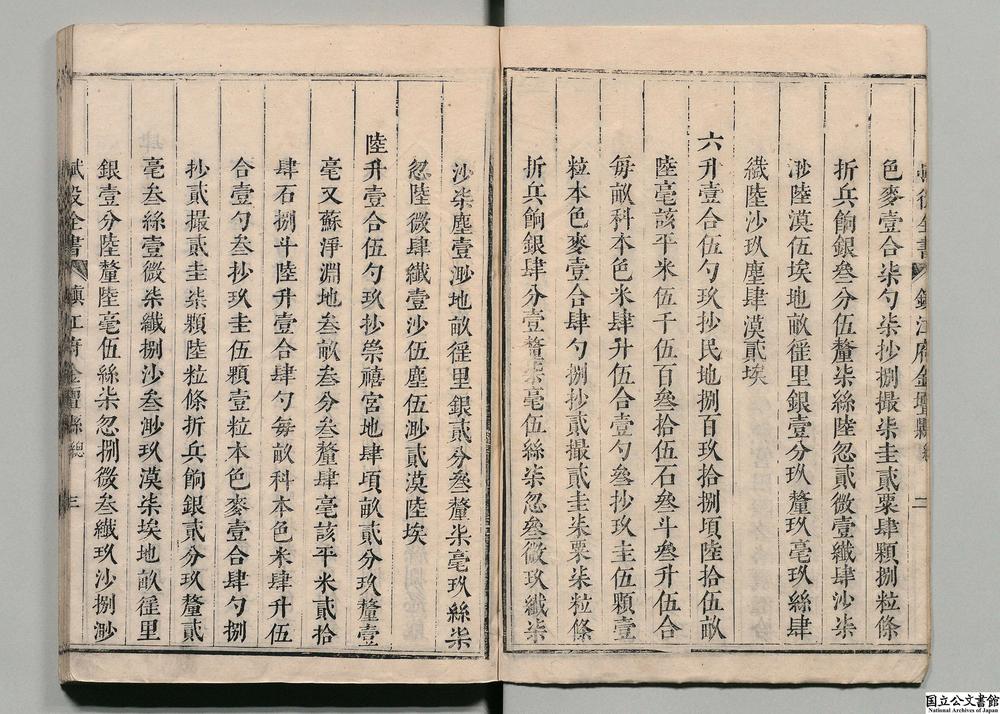 賦役全書 鎮江府金壇縣總 二
色麥壹合柒勺柒抄捌撮柒圭貳粟肆顆捌粒條
折兵餉銀叁分伍釐柒絲陸忽貳微壹纖肆沙柒
渺陸漠伍埃地畝徭里銀壹分玖釐玖毫玖絲肆
纎陸沙玖塵肆漠貳埃
六升壹合伍勺玖抄民地捌百玖拾捌項陸拾伍畝
陸毫該平米伍千伍百叁拾伍石叁斗叁升伍合
每畝科本色米肆升伍合壹勺叁抄玖圭伍顆壹
粒本色麥壹合肆勺捌抄貳撮貳圭柒粟柒粒條
折兵餉銀肆分壹釐柒毫伍絲柒忽叁微玖纖柒
沙柒塵壹渺地畝徭里銀貳分叁釐柒毫玖絲柒
忽陸微肆纖壹沙伍塵伍渺貳漠陸埃
陸升壹合伍勺玖抄崇禧宮地肆項畝貳分玖釐壹
毫又蘇淨淵地叁畝叁分叁釐肆毫該平米貳拾
肆石捌斗陸升壹合肆勺每畝科本色米肆升伍
合壹勺叁抄玖圭伍顆壹粒本色麥壹合肆勺捌
抄貳撮貳圭柒顆陸粒條折兵餉銀貳分玖釐貳
毫叁絲壹微柒纖捌沙叁渺玖漠柒埃地畝徭里
銀壹分陸釐陸毫伍絲柒忽捌微叁纖玖沙捌渺
賦役全書 鎮江府金壇縣總 三
国立公文書館
National Archives of Japan